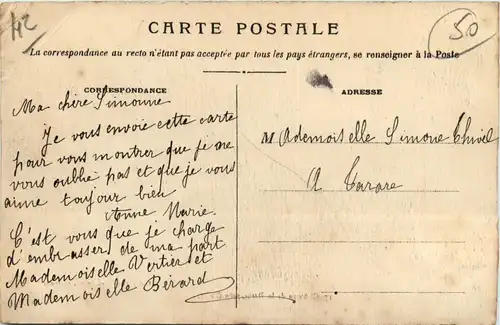 42
50
CARTE POSTALE
La correspondance au recto n'étant pas acceptée par tous les pays étrangers, se renseigner à la Poste
CORRESPONDANCE
Ma chère Simonne
Je vous envoie cette carte
pour vous montrer que je ne
vous oublié pas et que je vous
aime toujour bien
Anne Marie.
C'est vous que je charge
d'embrasser de ma part
Mademoiselle Vertier et
Mademoiselle Bérard
ADRESSE
Mademoiselle Simone
A Tarare